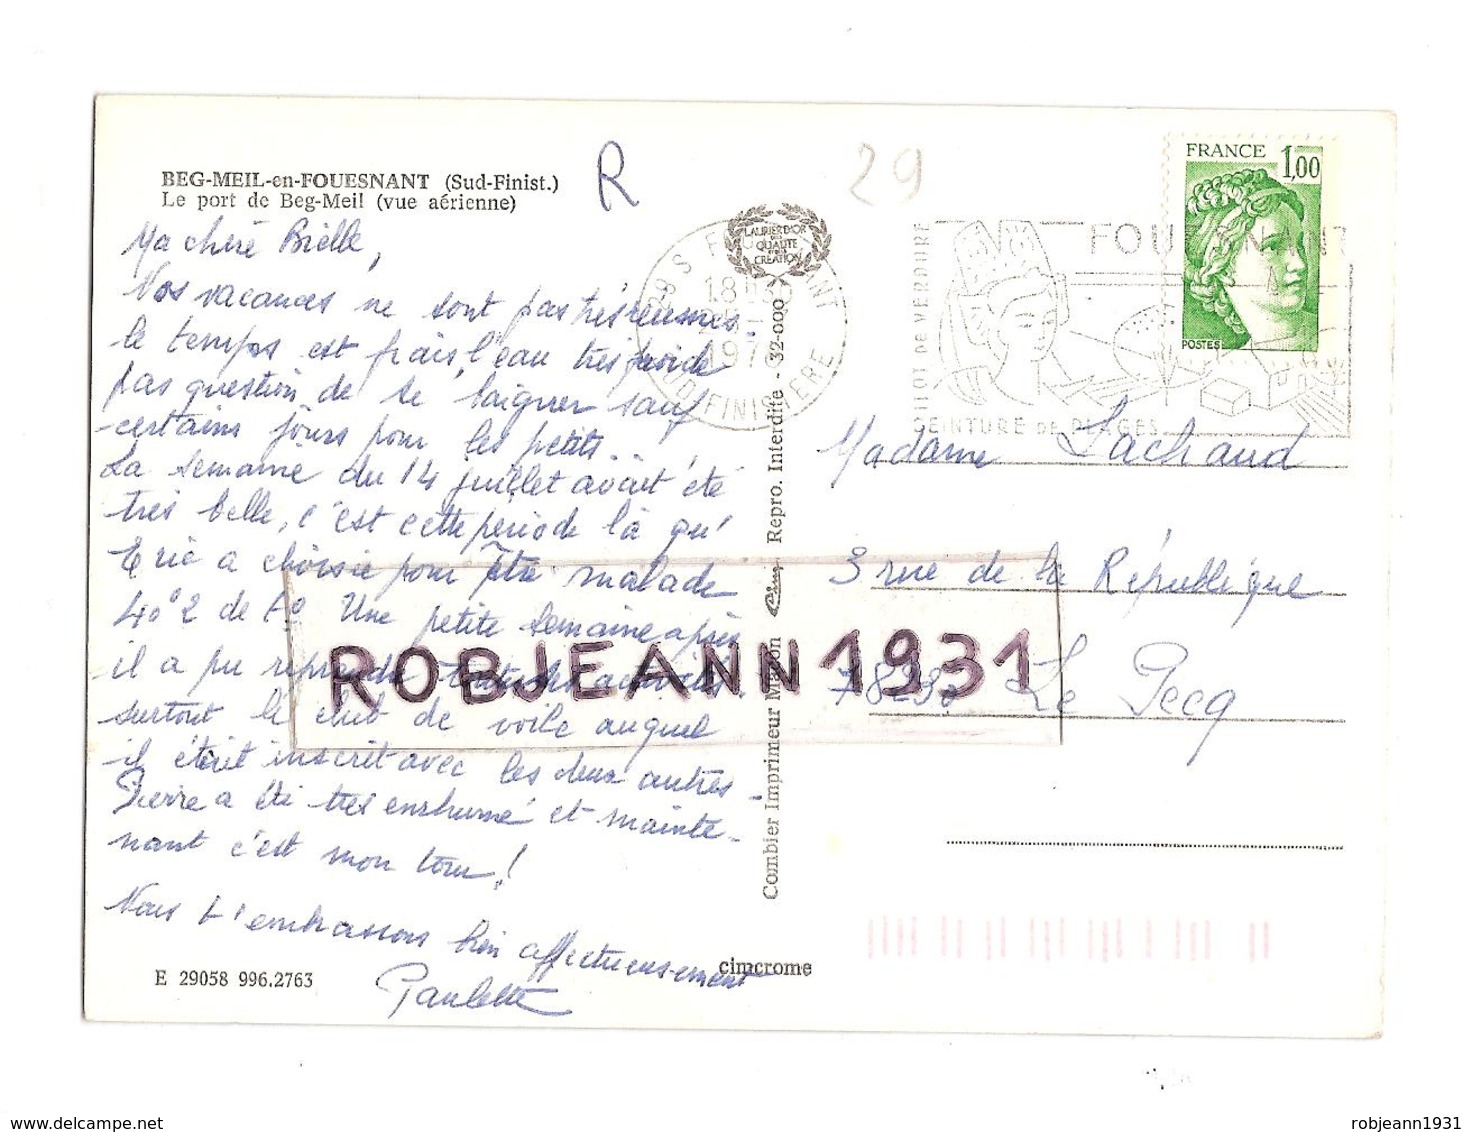 BEG-MEIL-en-FOUESNANT (Sud-Finist.)
Le port de Beg-Meil (vue aérienne)
R
29
FRANCE 1,00
POSTES
LAURIER D'OR
QUALITÉ
CRÉATION
1978
SUD FINISTERE
FOUESNANT
ILOT DE VERDURE
CEINTURE DE PLAGES
Ma chère Bielle,
Nos vacances ne sont pas très réussies.
le temps est frais, l'eau très froide
pas question de se baigner sauf
certains jours pour les petits..
La semaine du 14 juillet avait été
très belle, c'est cette période là qu'
Eric a choisie pour être malade
40°2 de t° Une petite semaine après
il a pu reprendre toutes ses activités
surtout le club de voile auquel
il était inscrit avec les deux autres -
Pierre a été très enrhumé et mainte-
nant c'est mon tour!
Nous t'embrassons bien affectueusement
Paulette
Madame Lachaud
3 rue de la République
78230 Le Pecq
ROBJEANN1931
Combier Imprimeur Macon Repro. Interdite - 32-000
E 29058 996.2763
cimcrome
www.delcampe.net
robjeann1931